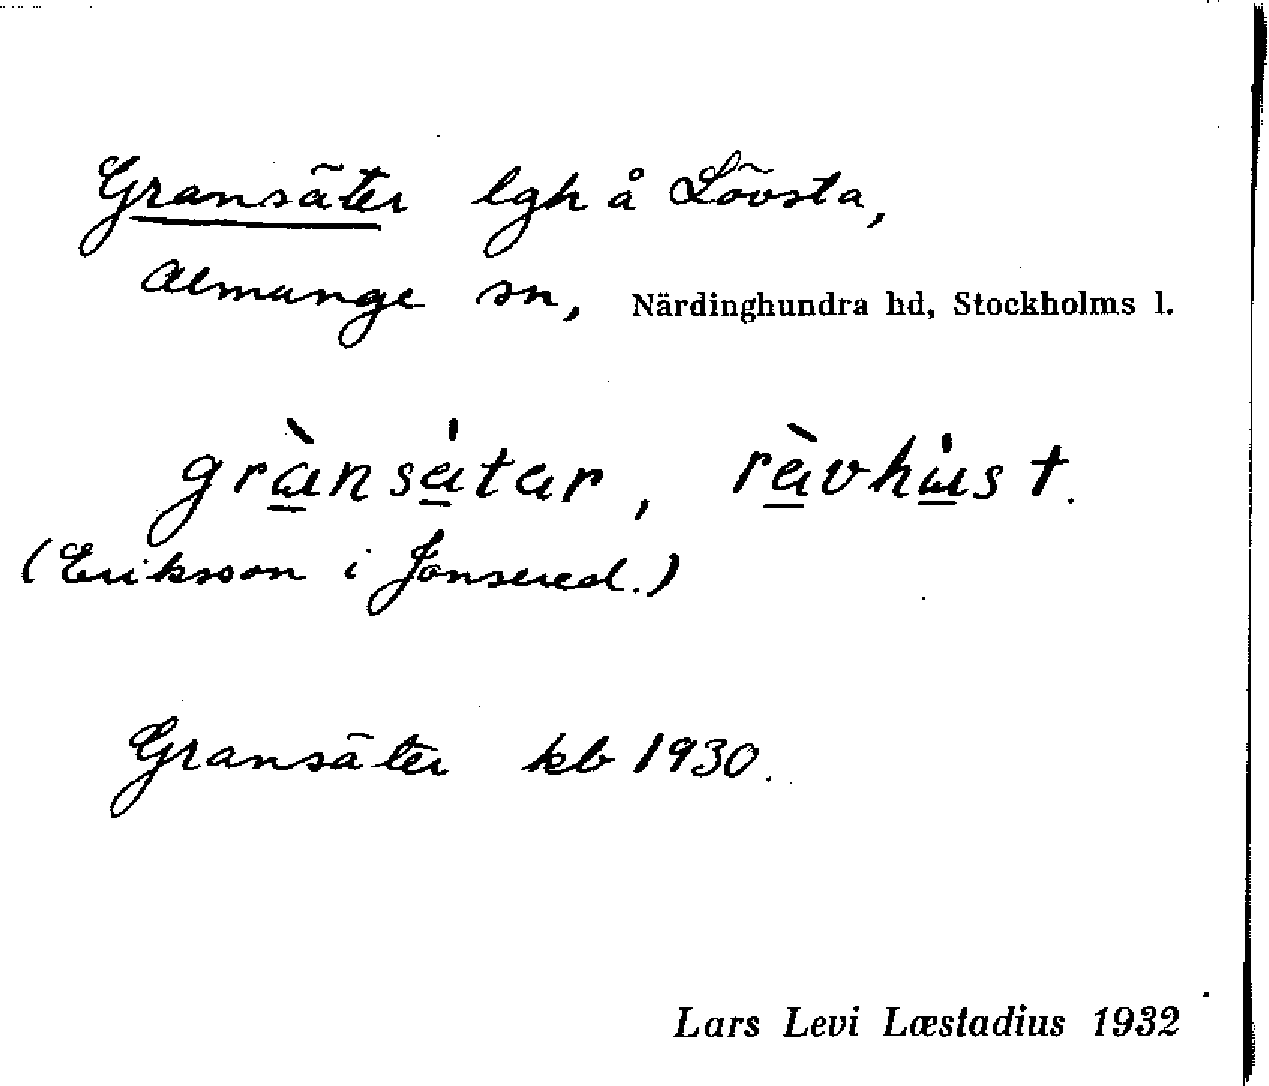 Gransäter lgh å Lövsta,
Almunge sn, Närdinghundra hd, Stockholms l.
grànsátar, ràvhust.
(Eriksson i Jonsered.)
Gransäter kb 1930.
Lars Levi Læstadius 1932